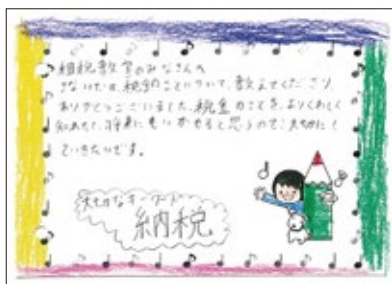 租税教室のみなさんへ
さないだは、税金のことについて、教えてくださり
ありがとうございました。税金のことを、よりくわしく
知れたし、将来にもいかせると思うので、大切にし
ていきたいです。
大切なキーワード
納税